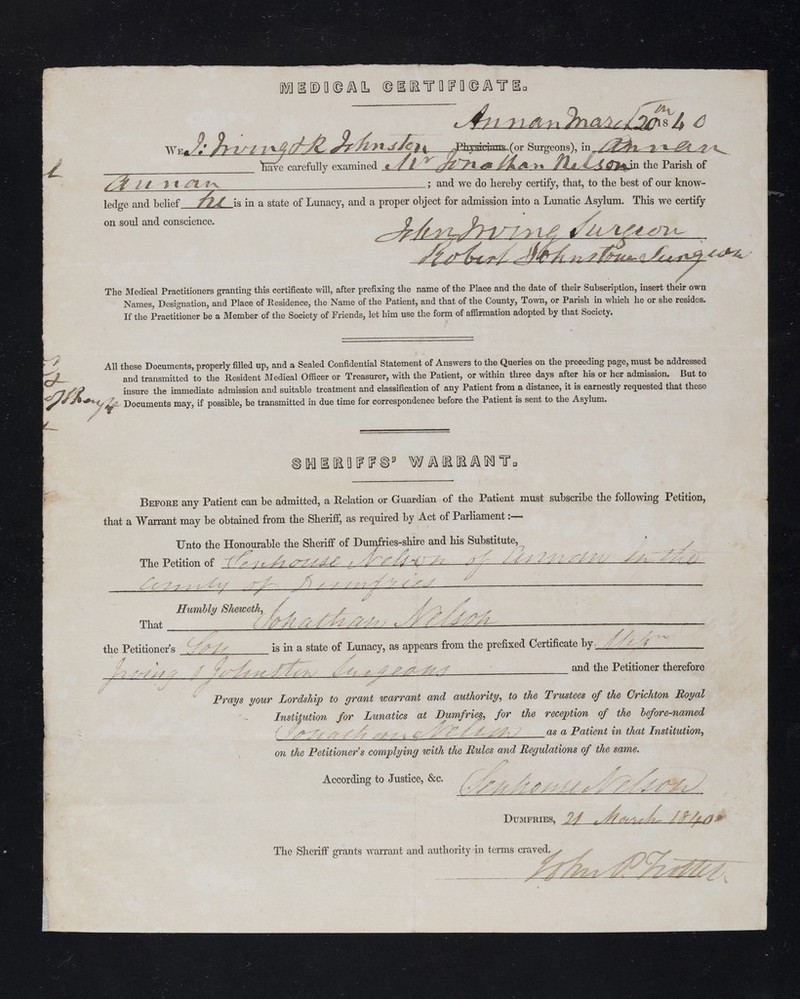 MEDICAL CERTIFICATE.
Annan March 20th 1840
WE J: Irving & R Johnston Physicians (or Surgeons), in Annan
have carefully examined Mr Jonathan Nelson in the Parish of
Annan ; and we do hereby certify, that, to the best of our know-
ledge and belief he is in a state of Lunacy, and a proper object for admission into a Lunatic Asylum. This we certify
on soul and conscience.
John Irving Surgeon
Robert Johnstone Surgeon
The Medical Practitioners granting this certificate will, after prefixing the name of the Place and the date of their Subscription, insert their own
Names, Designation, and Place of Residence, the Name of the Patient, and that of the County, Town, or Parish in which he or she resides.
If the Practitioner be a Member of the Society of Friends, let him use the form of affirmation adopted by that Society.
All these Documents, properly filled up, and a Sealed Confidential Statement of Answers to the Queries on the preceding page, must be addressed
and transmitted to the Resident Medical Officer or Treasurer, with the Patient, or within three days after his or her admission. But to
insure the immediate admission and suitable treatment and classification of any Patient from a distance, it is earnestly requested that these
Documents may, if possible, be transmitted in due time for correspondence before the Patient is sent to the Asylum.
SHERIFFS' WARRANT.
BEFORE any Patient can be admitted, a Relation or Guardian of the Patient must subscribe the following Petition,
that a Warrant may be obtained from the Sheriff, as required by Act of Parliament:—
Unto the Honourable the Sheriff of Dumfries-shire and his Substitute,
The Petition of Senhouse Nelson of Annan in the
County of Dumfries
Humbly Sheweth,
That Jonathan Nelson
the Petitioner's Son is in a state of Lunacy, as appears from the prefixed Certificate by Messrs
Irving & Johnston Surgeons and the Petitioner therefore
Prays your Lordship to grant warrant and authority, to the Trustees of the Crichton Royal
Institution for Lunatics at Dumfries, for the reception of the before-named
Jonathan Nelson as a Patient in that Institution,
on the Petitioner's complying with the Rules and Regulations of the same.
According to Justice, &c. Senhouse Nelson
DUMFRIES, 21 March 1840
The Sheriff grants warrant and authority in terms craved.
John P. Trotter